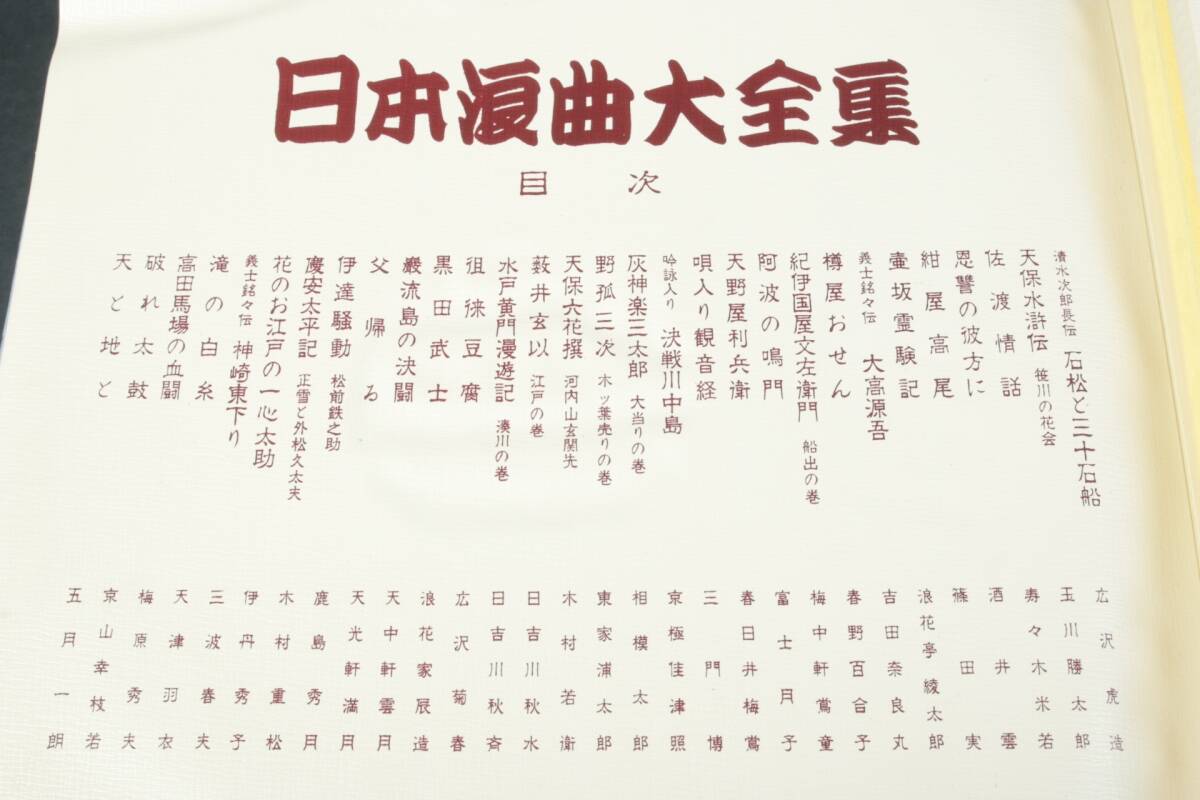 日本浪曲大全集
目次
清水次郎長伝 石松と三十石船
天保水滸伝 笹川の花会
佐渡情話
恩讐の彼方に
紺屋高尾
壷坂霊験記
義士銘々伝 大高源吾
樽屋おせん
紀伊国屋文左衛門 船出の巻
阿波の鳴門
天野屋利兵衛
唄入り観音経
吟詠入り 決戦川中島
灰神楽三太郎 大当りの巻
野孤三次 木ッ葉売りの巻
天保六花撰 河内山玄関先
薮井玄以 江戸の巻
水戸黄門漫遊記 湊川の巻
徂徠豆腐
黒田武士
巌流島の決闘
父帰る
伊達騒動 松前鉄之助
慶安太平記 正雪と外松久太夫
花のお江戸の一心太助
義士銘々伝 神崎東下り
滝の白糸
高田馬場の血闘
破れ太鼓
天と地と
広沢虎造
玉川勝太郎
寿々木米若
酒井雲
篠田実
浪花亭綾太郎
吉田奈良丸
春野百合子
梅中軒鶯童
富士月子
春日井梅鶯
三門博
京極佳津照
相模太郎
東家浦太郎
木村若衛
日吉川秋水
日吉川秋斉
広沢菊春
浪花家辰造
天中軒雲月
天光軒満月
鹿島秀月
木村重松
伊丹秀子
三波春夫
天津羽衣
梅原秀夫
京山幸枝若
五月一朗